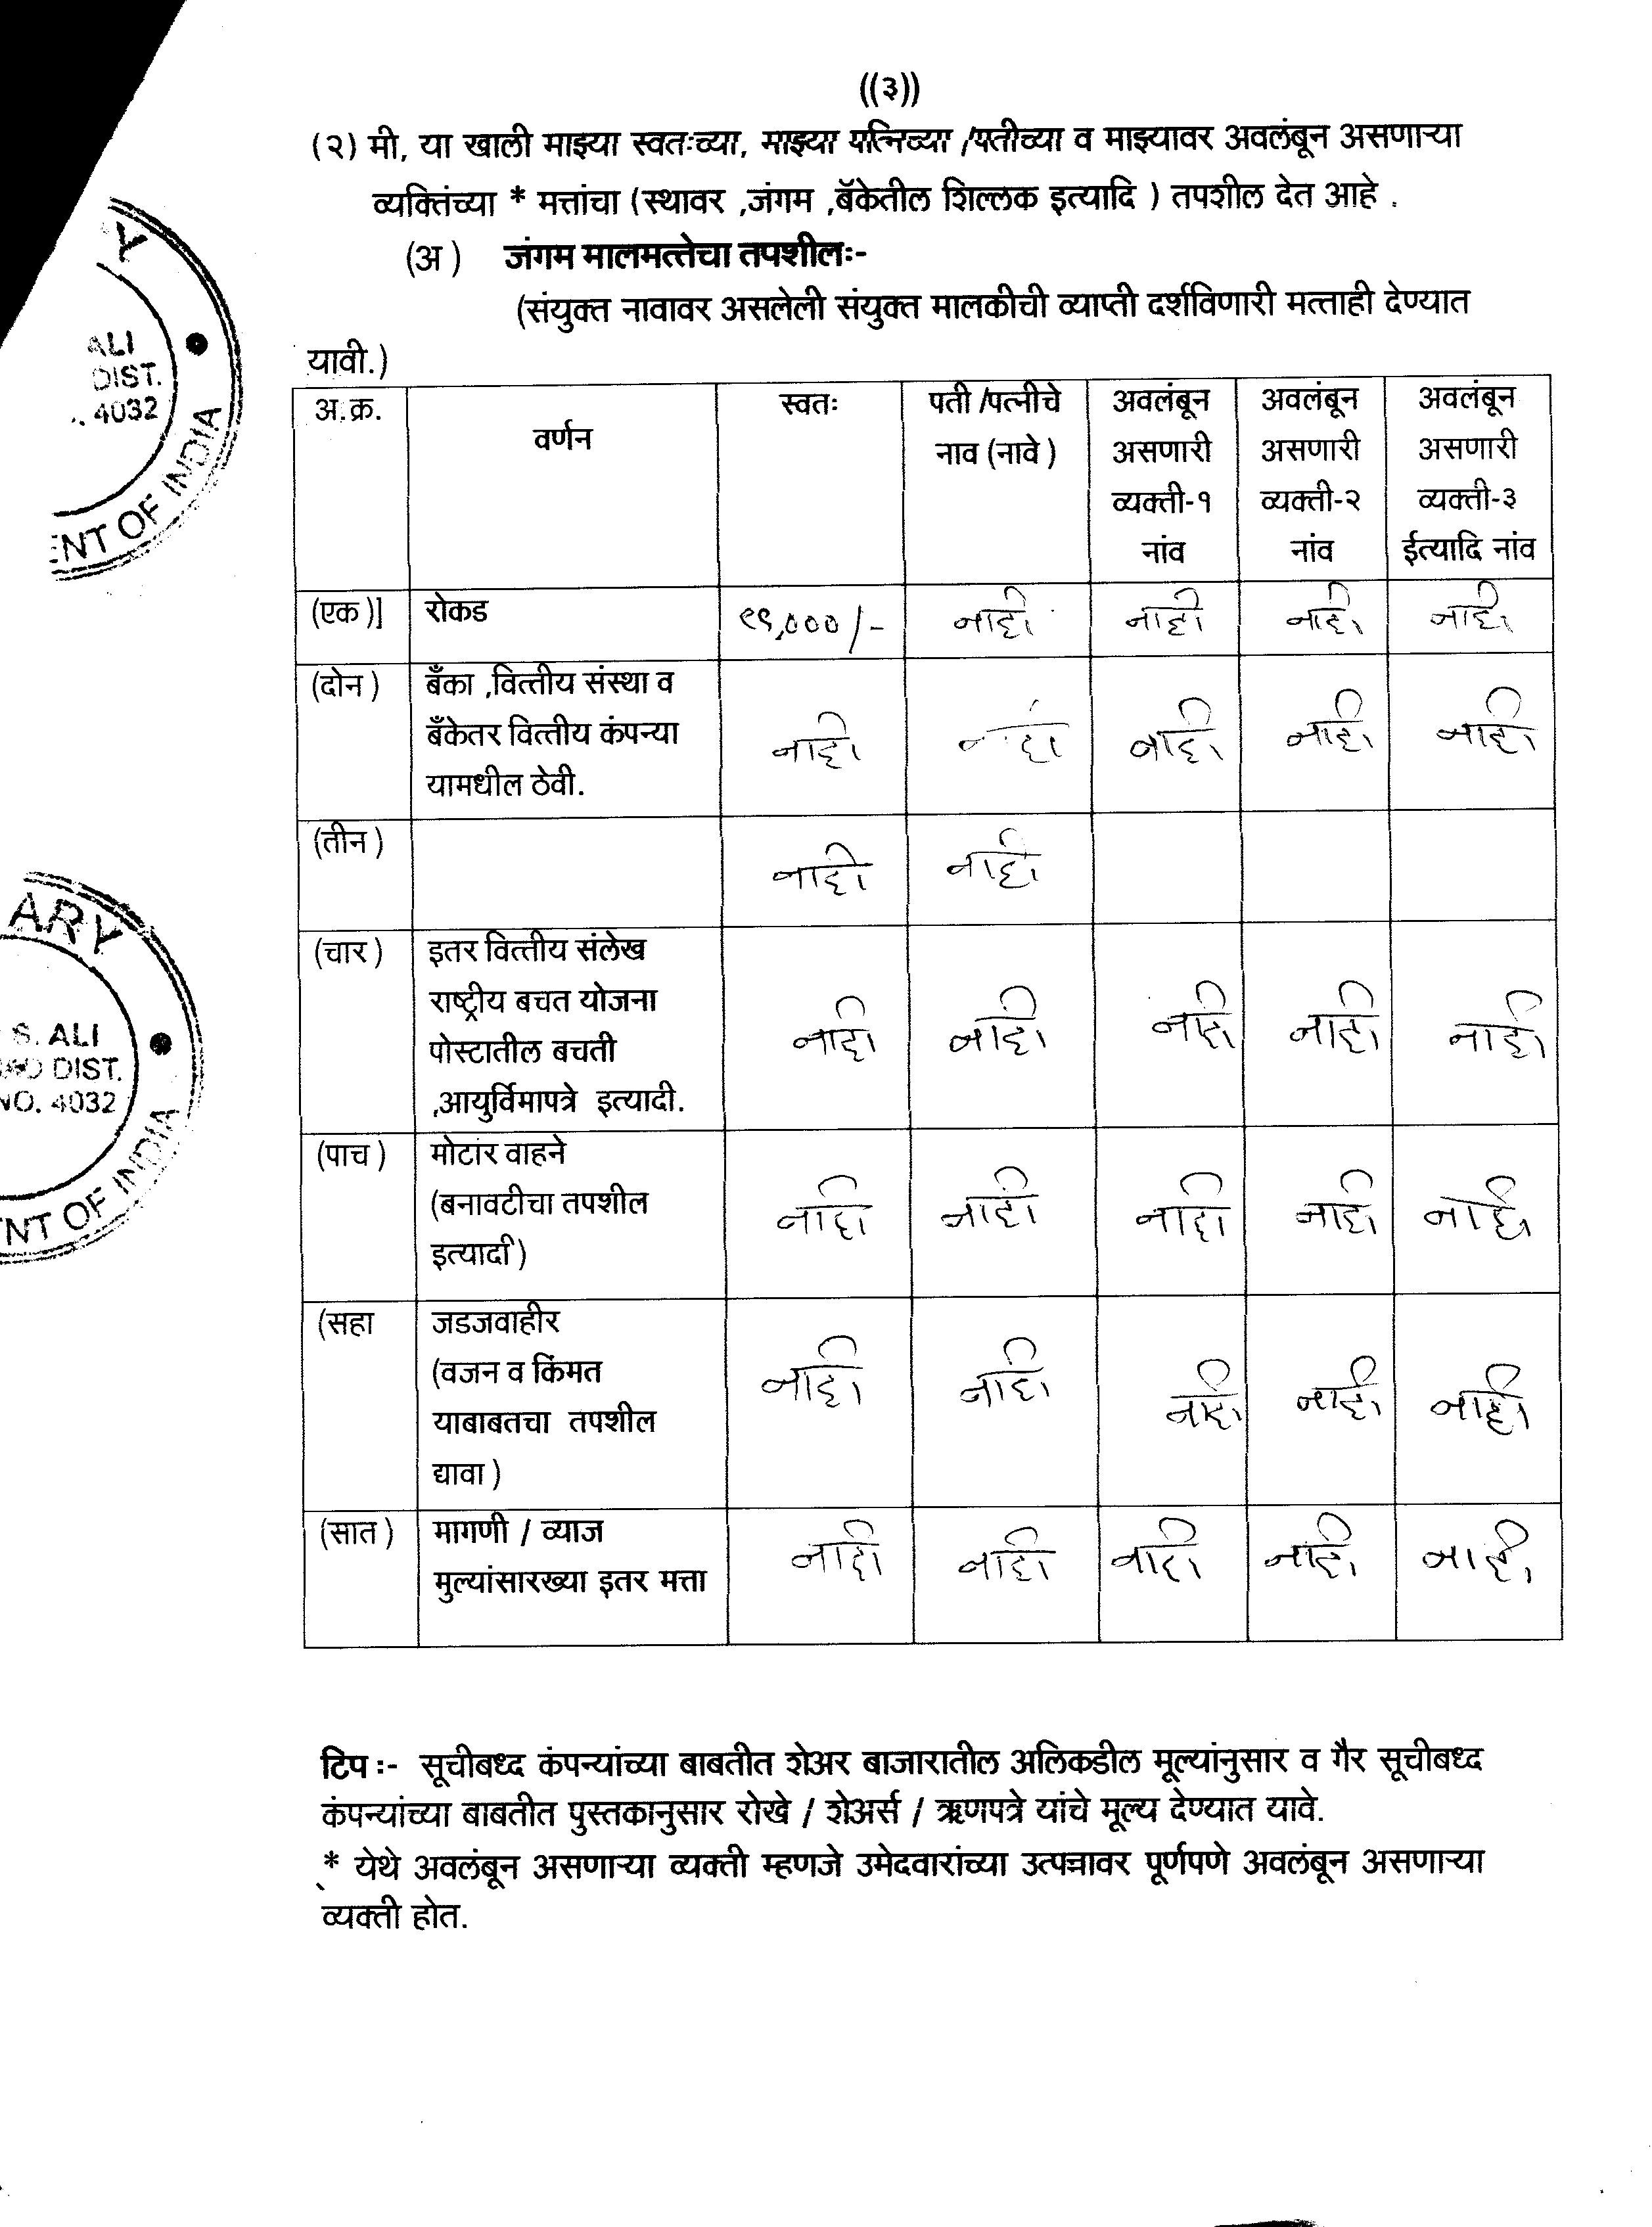 ((३))
(२) मी, या खाली माझ्या स्वतःच्या, माझ्या पत्निच्या /पतीच्या व माझ्यावर अवलंबून असणाऱ्या
व्यक्तिंच्या * मत्तांचा (स्थावर ,जंगम ,बॅकेतील शिल्लक इत्यादि ) तपशील देत आहे .
(अ ) जंगम मालमत्तेचा तपशीलः-
(संयुक्त नावावर असलेली संयुक्त मालकीची व्याप्ती दर्शविणारी मत्ताही देण्यात
यावी.)
अ.क्र. वर्णन स्वतः पती /पत्नीचे नाव (नावे ) अवलंबून असणारी व्यक्ती-१ नांव अवलंबून असणारी व्यक्ती-२ नांव अवलंबून असणारी व्यक्ती-३ ईत्यादि नांव
(एक )] रोकड नाही नाही नाही नाही
(दोन ) बँका ,वित्तीय संस्था व
बँकेतर वित्तीय कंपन्या
यामधील ठेवी.
नाही नाही नाही नाही नाही
(तीन ) नाही नाही
(चार ) इतर वित्तीय संलेख
राष्ट्रीय बचत योजना
पोस्टातील बचती
,आयुर्विमापत्रे इत्यादी.
नाही नाही नाही नाही नाही
(पाच ) मोटार वाहने
(बनावटीचा तपशील
इत्यादी)
नाही नाही नाही नाही नाही
(सहा जडजवाहीर
(वजन व किंमत
याबाबतचा तपशील
द्यावा )
नाही नाही नाही नाही नाही
(सात ) मागणी / व्याज
मुल्यांसारख्या इतर मत्ता
नाही नाही नाही नाही नाही
टिप :- सूचीबध्द कंपन्यांच्या बाबतीत शेअर बाजारातील अलिकडील मूल्यांनुसार व गैर सूचीबध्द
कंपन्यांच्या बाबतीत पुस्तकानुसार रोखे / शेअर्स / ऋणपत्रे यांचे मूल्य देण्यात यावे.
* येथे अवलंबून असणाऱ्या व्यक्ती म्हणजे उमेदवारांच्या उत्पन्नावर पूर्णपणे अवलंबून असणाऱ्या
व्यक्ती होत.
ALI
DIST.
4032
OF INDIA
ARY
S. ALI
DIST.
NO. 4032
OF INDIA